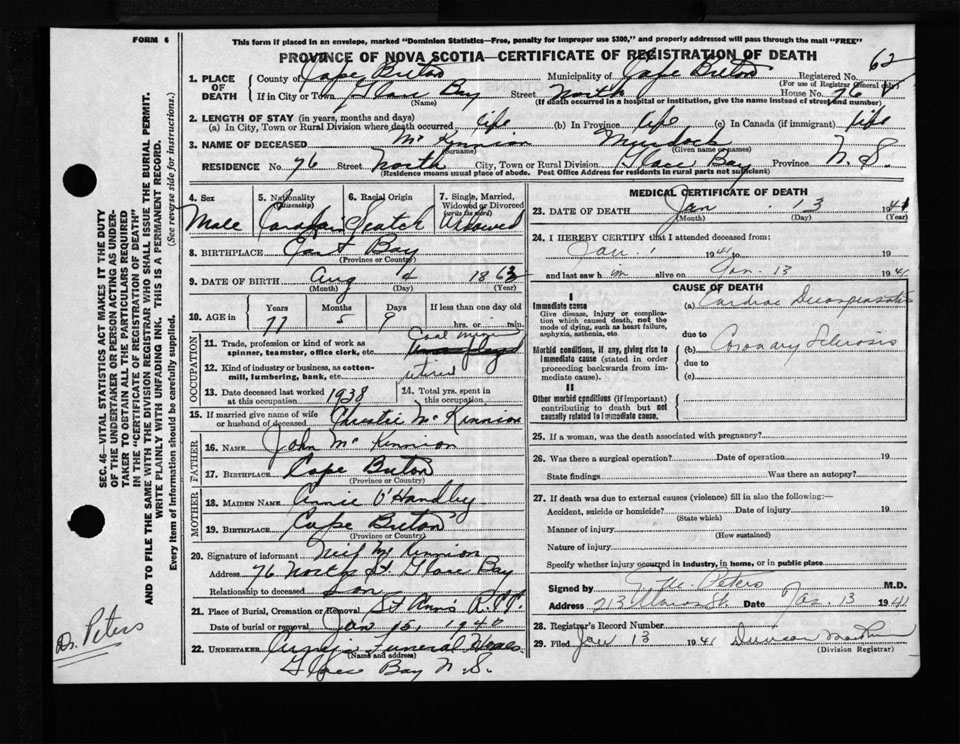 FORM 6
This form if placed in an envelope, marked "Dominion Statistics—Free, penalty for improper use $300," and properly addressed will pass through the mail "FREE"
PROVINCE OF NOVA SCOTIA—CERTIFICATE OF REGISTRATION OF DEATH
62
1. PLACE OF DEATH County of Cape Breton Municipality of Cape Breton Registered No.
(For use of Registrar General only)
If in City or Town Glace Bay Street North House No. 76
(Name) (If death occurred in a hospital or institution, give the name instead of street and number)
2. LENGTH OF STAY (in years, months and days)
(a) In City, Town or Rural Division where death occurred life (b) In Province life (c) In Canada (if immigrant) life
3. NAME OF DECEASED McKinnion Murdock
(Surname) (Given name or names)
RESIDENCE No. 76 Street North City, Town or Rural Division Glace Bay Province N.S.
(Residence means usual place of abode. Post Office Address for residents in rural parts not sufficient)
4. Sex 5. Nationality (Citizenship) 6. Racial Origin 7. Single, Married, Widowed or Divorced (write the word)
Male Scotch Widowed
8. BIRTHPLACE East Bay
(Province or Country)
9. DATE OF BIRTH Aug 4 1863
(Month) (Day) (Year)
10. AGE in Years Months Days If less than one day old
77 5 9 hrs. or min.
OCCUPATION
11. Trade, profession or kind of work as spinner, teamster, office clerk, etc. Coal miner
12. Kind of industry or business, as cotton-mill, lumbering, bank, etc. retired
13. Date deceased last worked at this occupation 1938 14. Total yrs. spent in this occupation
15. If married give name of wife or husband of deceased Christie McKinnion
FATHER
16. Name John McKinnion
17. Birthplace Cape Breton
(Province or Country)
MOTHER
18. Maiden Name Annie O'Handley
19. Birthplace Cape Breton
(Province or Country)
20. Signature of informant Neil McKinnion
Address 76 North St. Glace Bay
Relationship to deceased Son
21. Place of Burial, Cremation or Removal St Ann's
Date of burial or removal Jan 15, 1940
22. UNDERTAKER Funeral Home
(Name and address)
Glace Bay N.S.
MEDICAL CERTIFICATE OF DEATH
23. DATE OF DEATH Jan 13 1941
(Month) (Day) (Year)
24. I HEREBY CERTIFY that I attended deceased from:
Jan. 1 1941 to 19
and last saw h m alive on Jan. 13 1941
CAUSE OF DEATH
I
Immediate cause
Give disease, injury or complication which caused death, not the mode of dying, such as heart failure, asphyxia, asthenia, etc
(a) Cardiac Decompensation
due to
Morbid conditions, if any, giving rise to immediate cause (stated in order proceeding backwards from immediate cause).
(b) Coronary Sclerosis
due to
(c)
II
Other morbid conditions (if important) contributing to death but not causally related to immediate cause.
25. If a woman, was the death associated with pregnancy?
26. Was there a surgical operation? Date of operation 19
State findings Was there an autopsy?
27. If death was due to external causes (violence) fill in also the following:—
Accident, suicide or homicide? Date of injury 19
(State which)
Manner of injury
(How sustained)
Nature of injury
Specify whether injury occurred in industry, in home, or in public place
Signed by E. M. Peters M.D.
Address 213 St. Date Jan. 13 1941
28. Registrar's Record Number
29. Filed Jan 13 1941
(Division Registrar)
SEC. 46—VITAL STATISTICS ACT MAKES IT THE DUTY
OF THE UNDERTAKER OR PERSON ACTING AS UNDERTAKER TO OBTAIN ALL THE PARTICULARS REQUIRED
IN THE "CERTIFICATE OF REGISTRATION OF DEATH"
AND TO FILE THE SAME WITH THE DIVISION REGISTRAR WHO SHALL ISSUE THE BURIAL PERMIT.
WRITE PLAINLY WITH UNFADING INK. THIS IS A PERMANENT RECORD.
Every item of information should be carefully supplied. (See reverse side for instructions.)
Dr. Peters